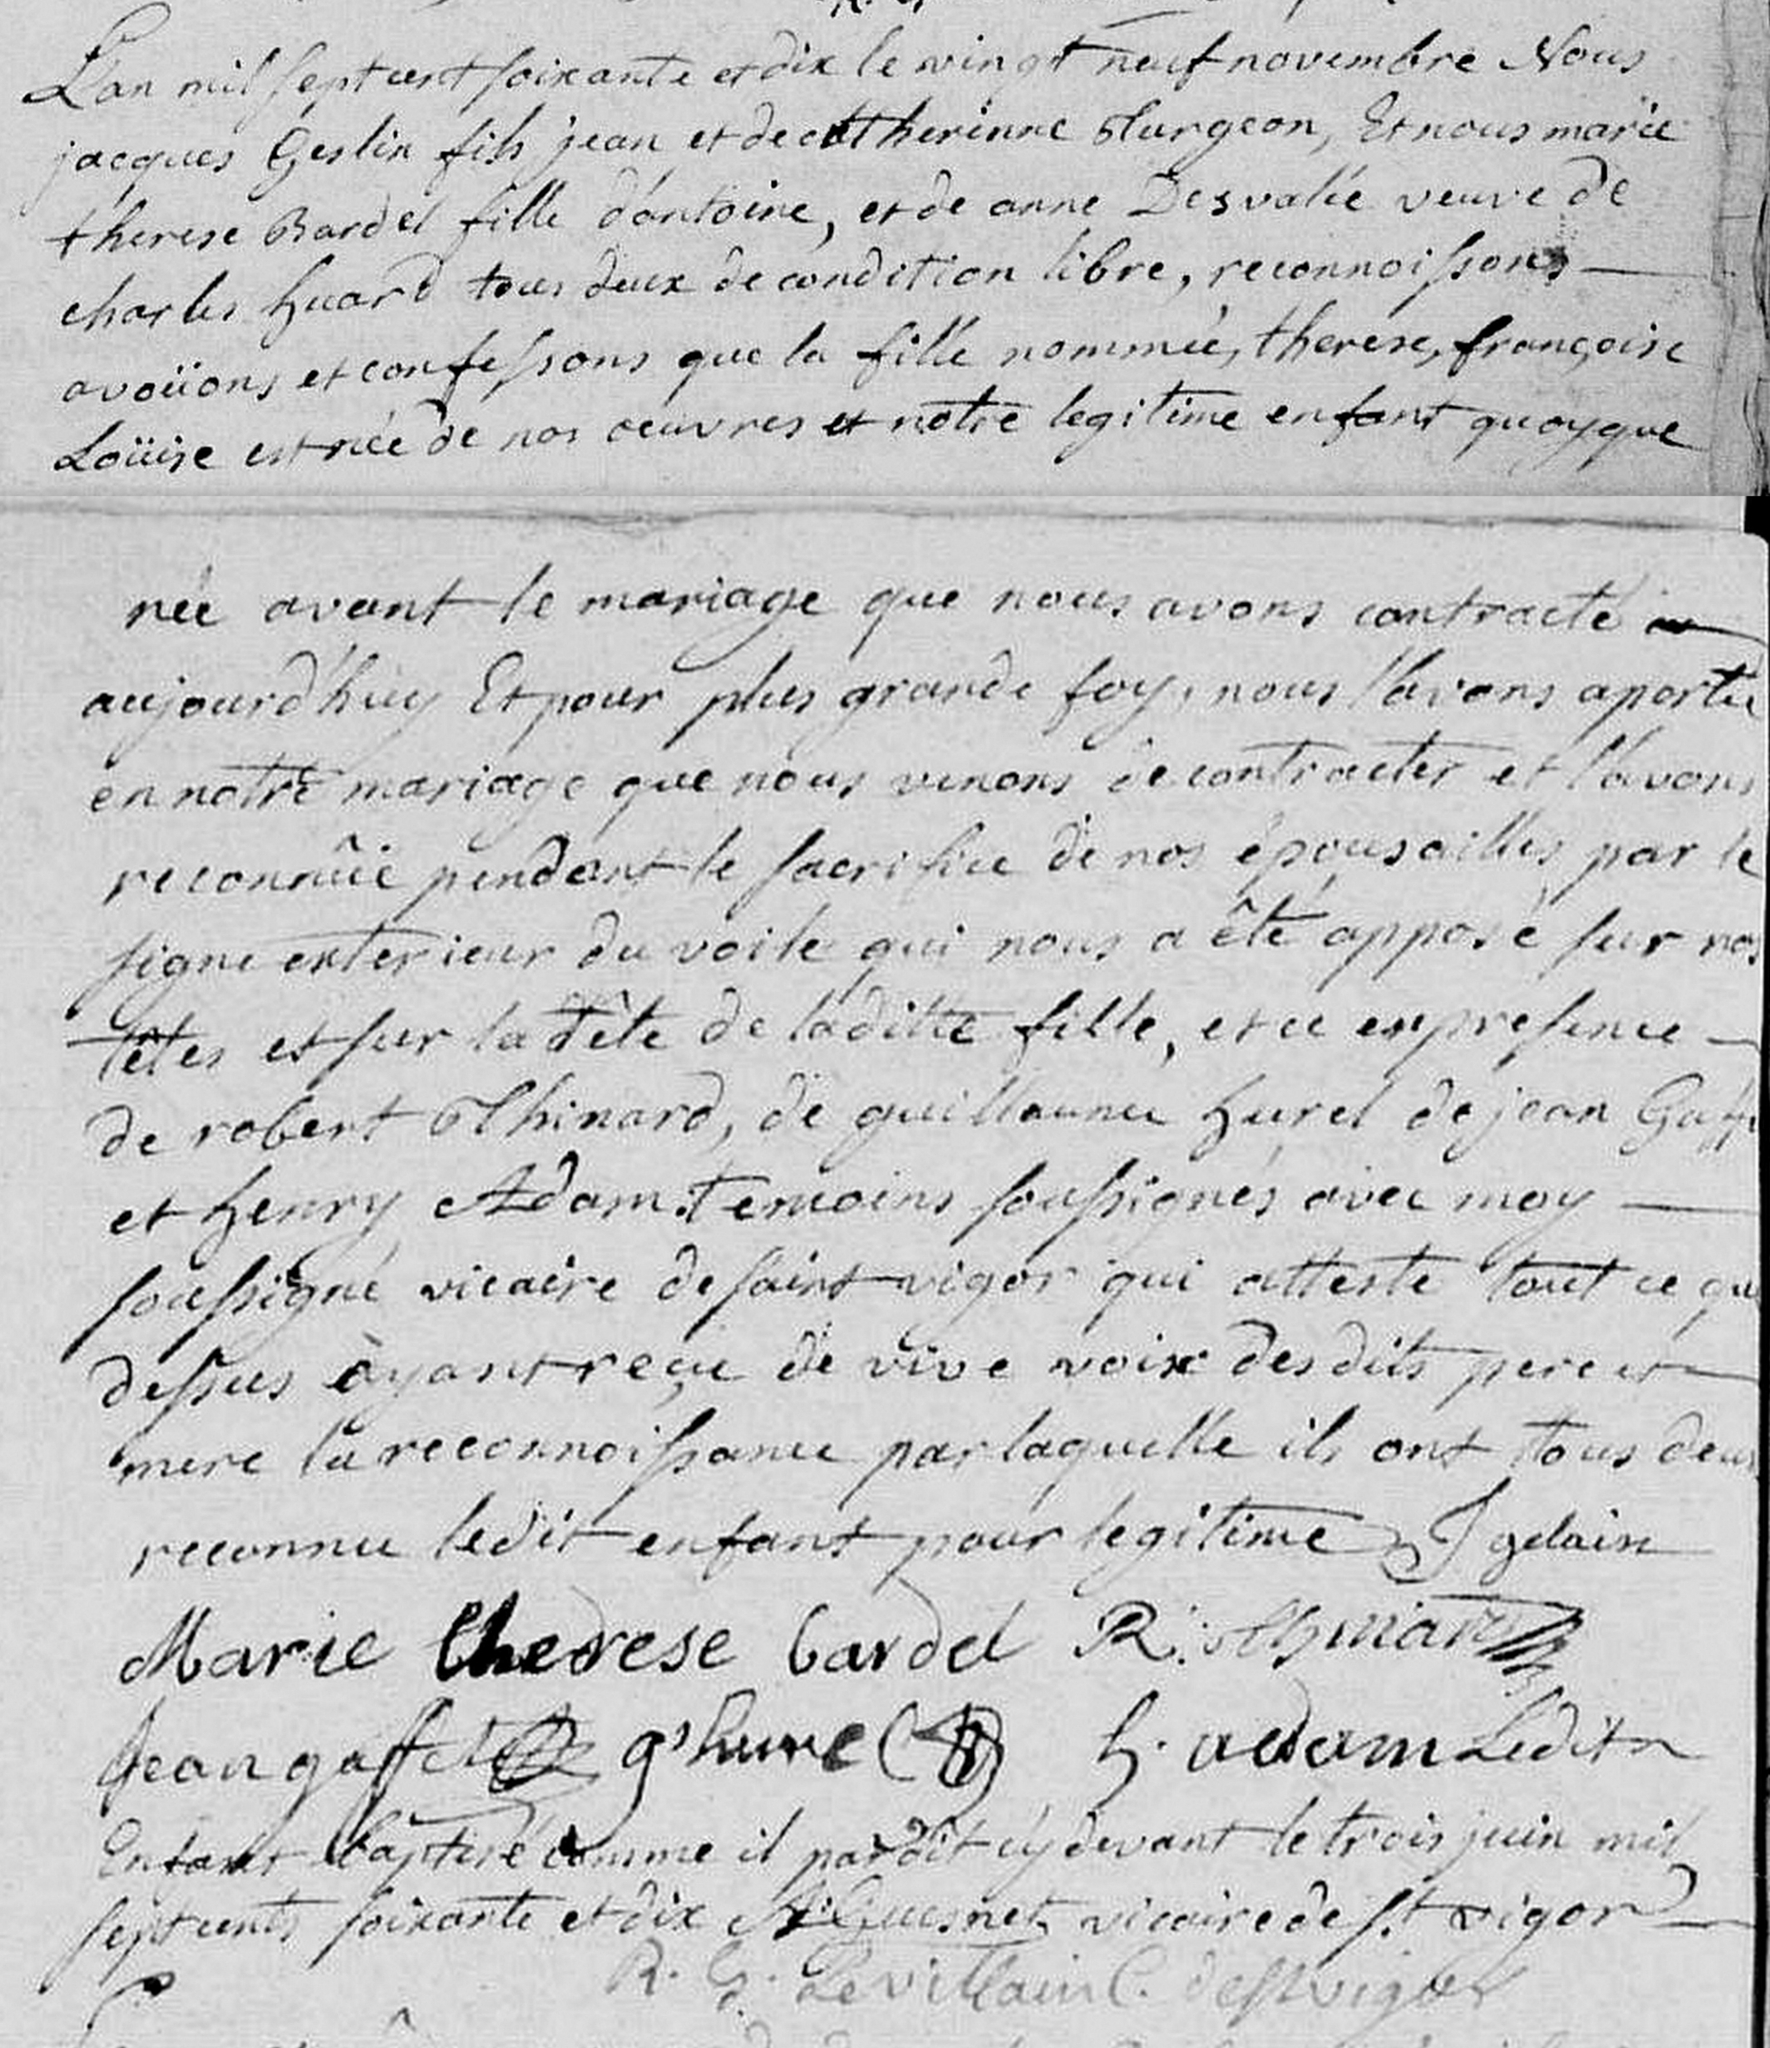 L'an mil sept cent soixante et dix le vingt neuf novembre Nous
jacques Geslin fils jean et de catherinne Sturgeon, Et nous marie
therese Bardel fille d'antoine, et de anne Desvalée veuve de
charles huard tous deux de condition libre, reconnoissons
avoüons et confessons que la fille nommée, therese, françoise
Loüise est née de nos oeuvres et notre legitime enfant quoyque
née avant le mariage que nous avons contracté
aujourd'huy Et pour plus grande foy, nous l'avons aportée
en notre mariage que nous venons de contracter et l'avons
reconnûe pendant le sacrifice de nos épousailles par le
signe exterieur du voile qui nous a êté apposé sur nos
têtes et sur la tête de laditte fille, et ce en presence
de robert Othinard, de guillaume hurel de jean Gaff
et henry Adam. temoins soussignés avec moy
soussigné vicaire de saint vigor qui atteste tout ce que
dessus ayant reçu de vive voix desdits pere et
mere la reconnoissance par laquelle ils ont tous deux
reconnu ledit enfant pour legitime J gelain
Marie therese bardel R.
jean gaffe g. hurel h. adam Ledit
Enfant baptisé comme il paroît cy devant le trois juin mil
sept cents soixante et dix Guesnet vicaire de st vigor
R. G. Levillain C. de st vigor